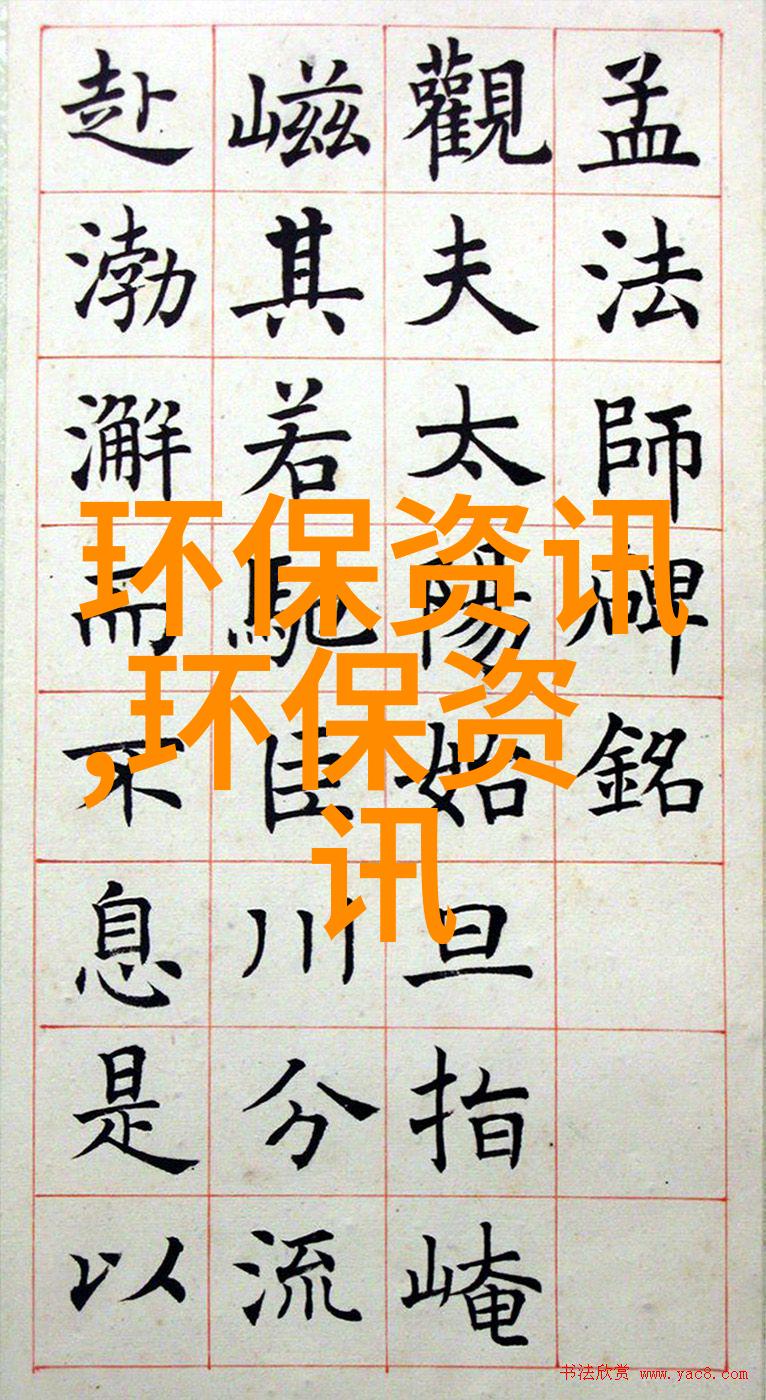 孟法師碑銘
觀夫太陽始旦指崦
嵫其若馳巨川分流
赴渤澥而不息是以
环保资讯
,环保资
讯
书法欣赏 www.yac8.com